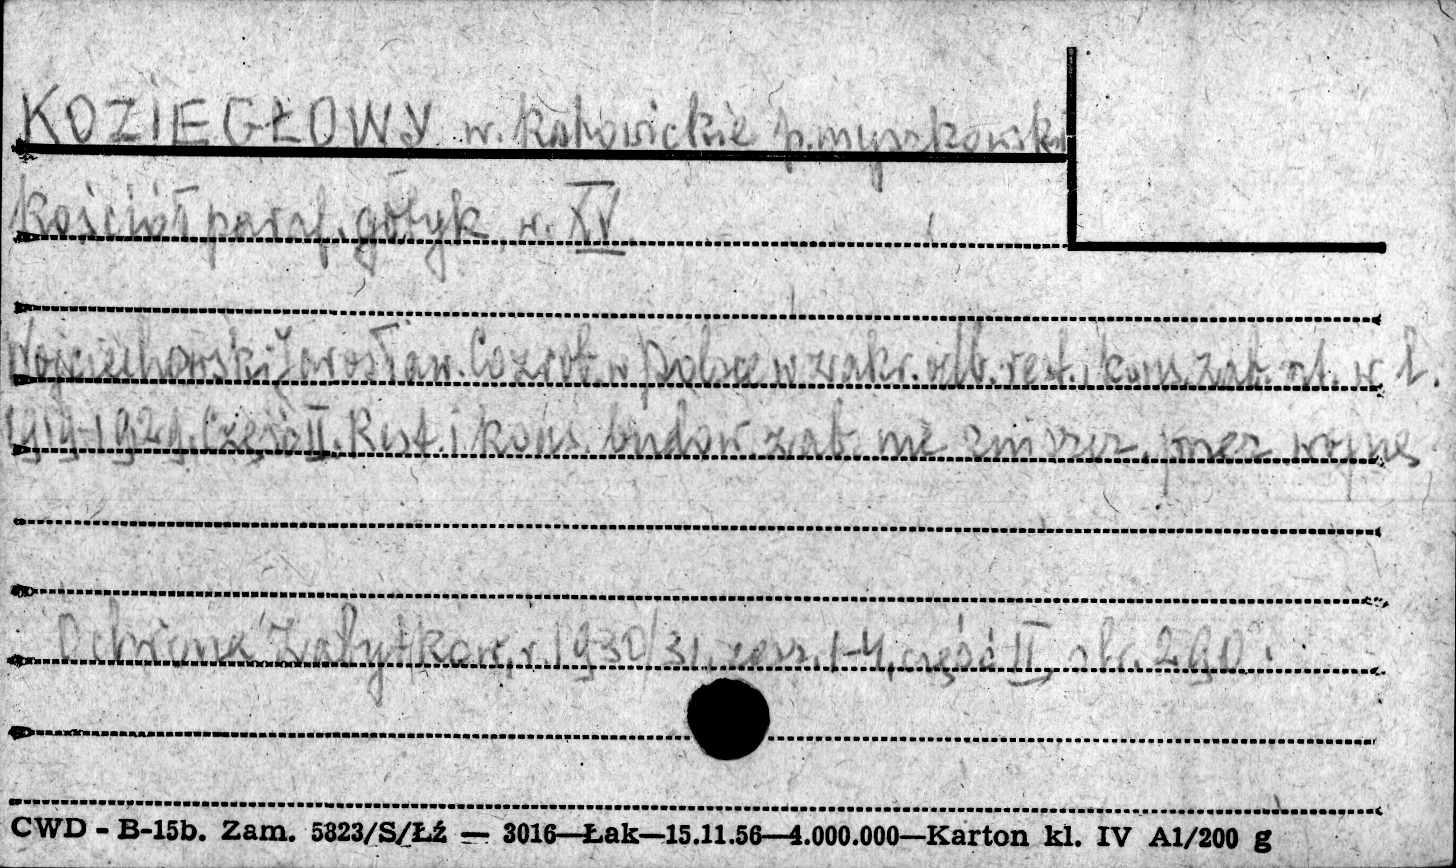 KOZIEGŁOWY w. katowickie p. myszkowski
Kościół paraf. gotyk w. XV
Wojciechowski Jarosław. Co zrob. w Polsce w zakr. odb. rest. i kons. zab. szt. w l.
1919-1929. Część II. Rest. i kons. budow. zab. nie zniszcz. przez wojnę
Ochrona Zabytków, r. 1930/31, zesz. 1-4, część II, str. 290.
CWD - B-15b. Zam. 5823/S/Łź — 3016—Łak—15.11.56—4.000.000—Karton kl. IV A1/200 g